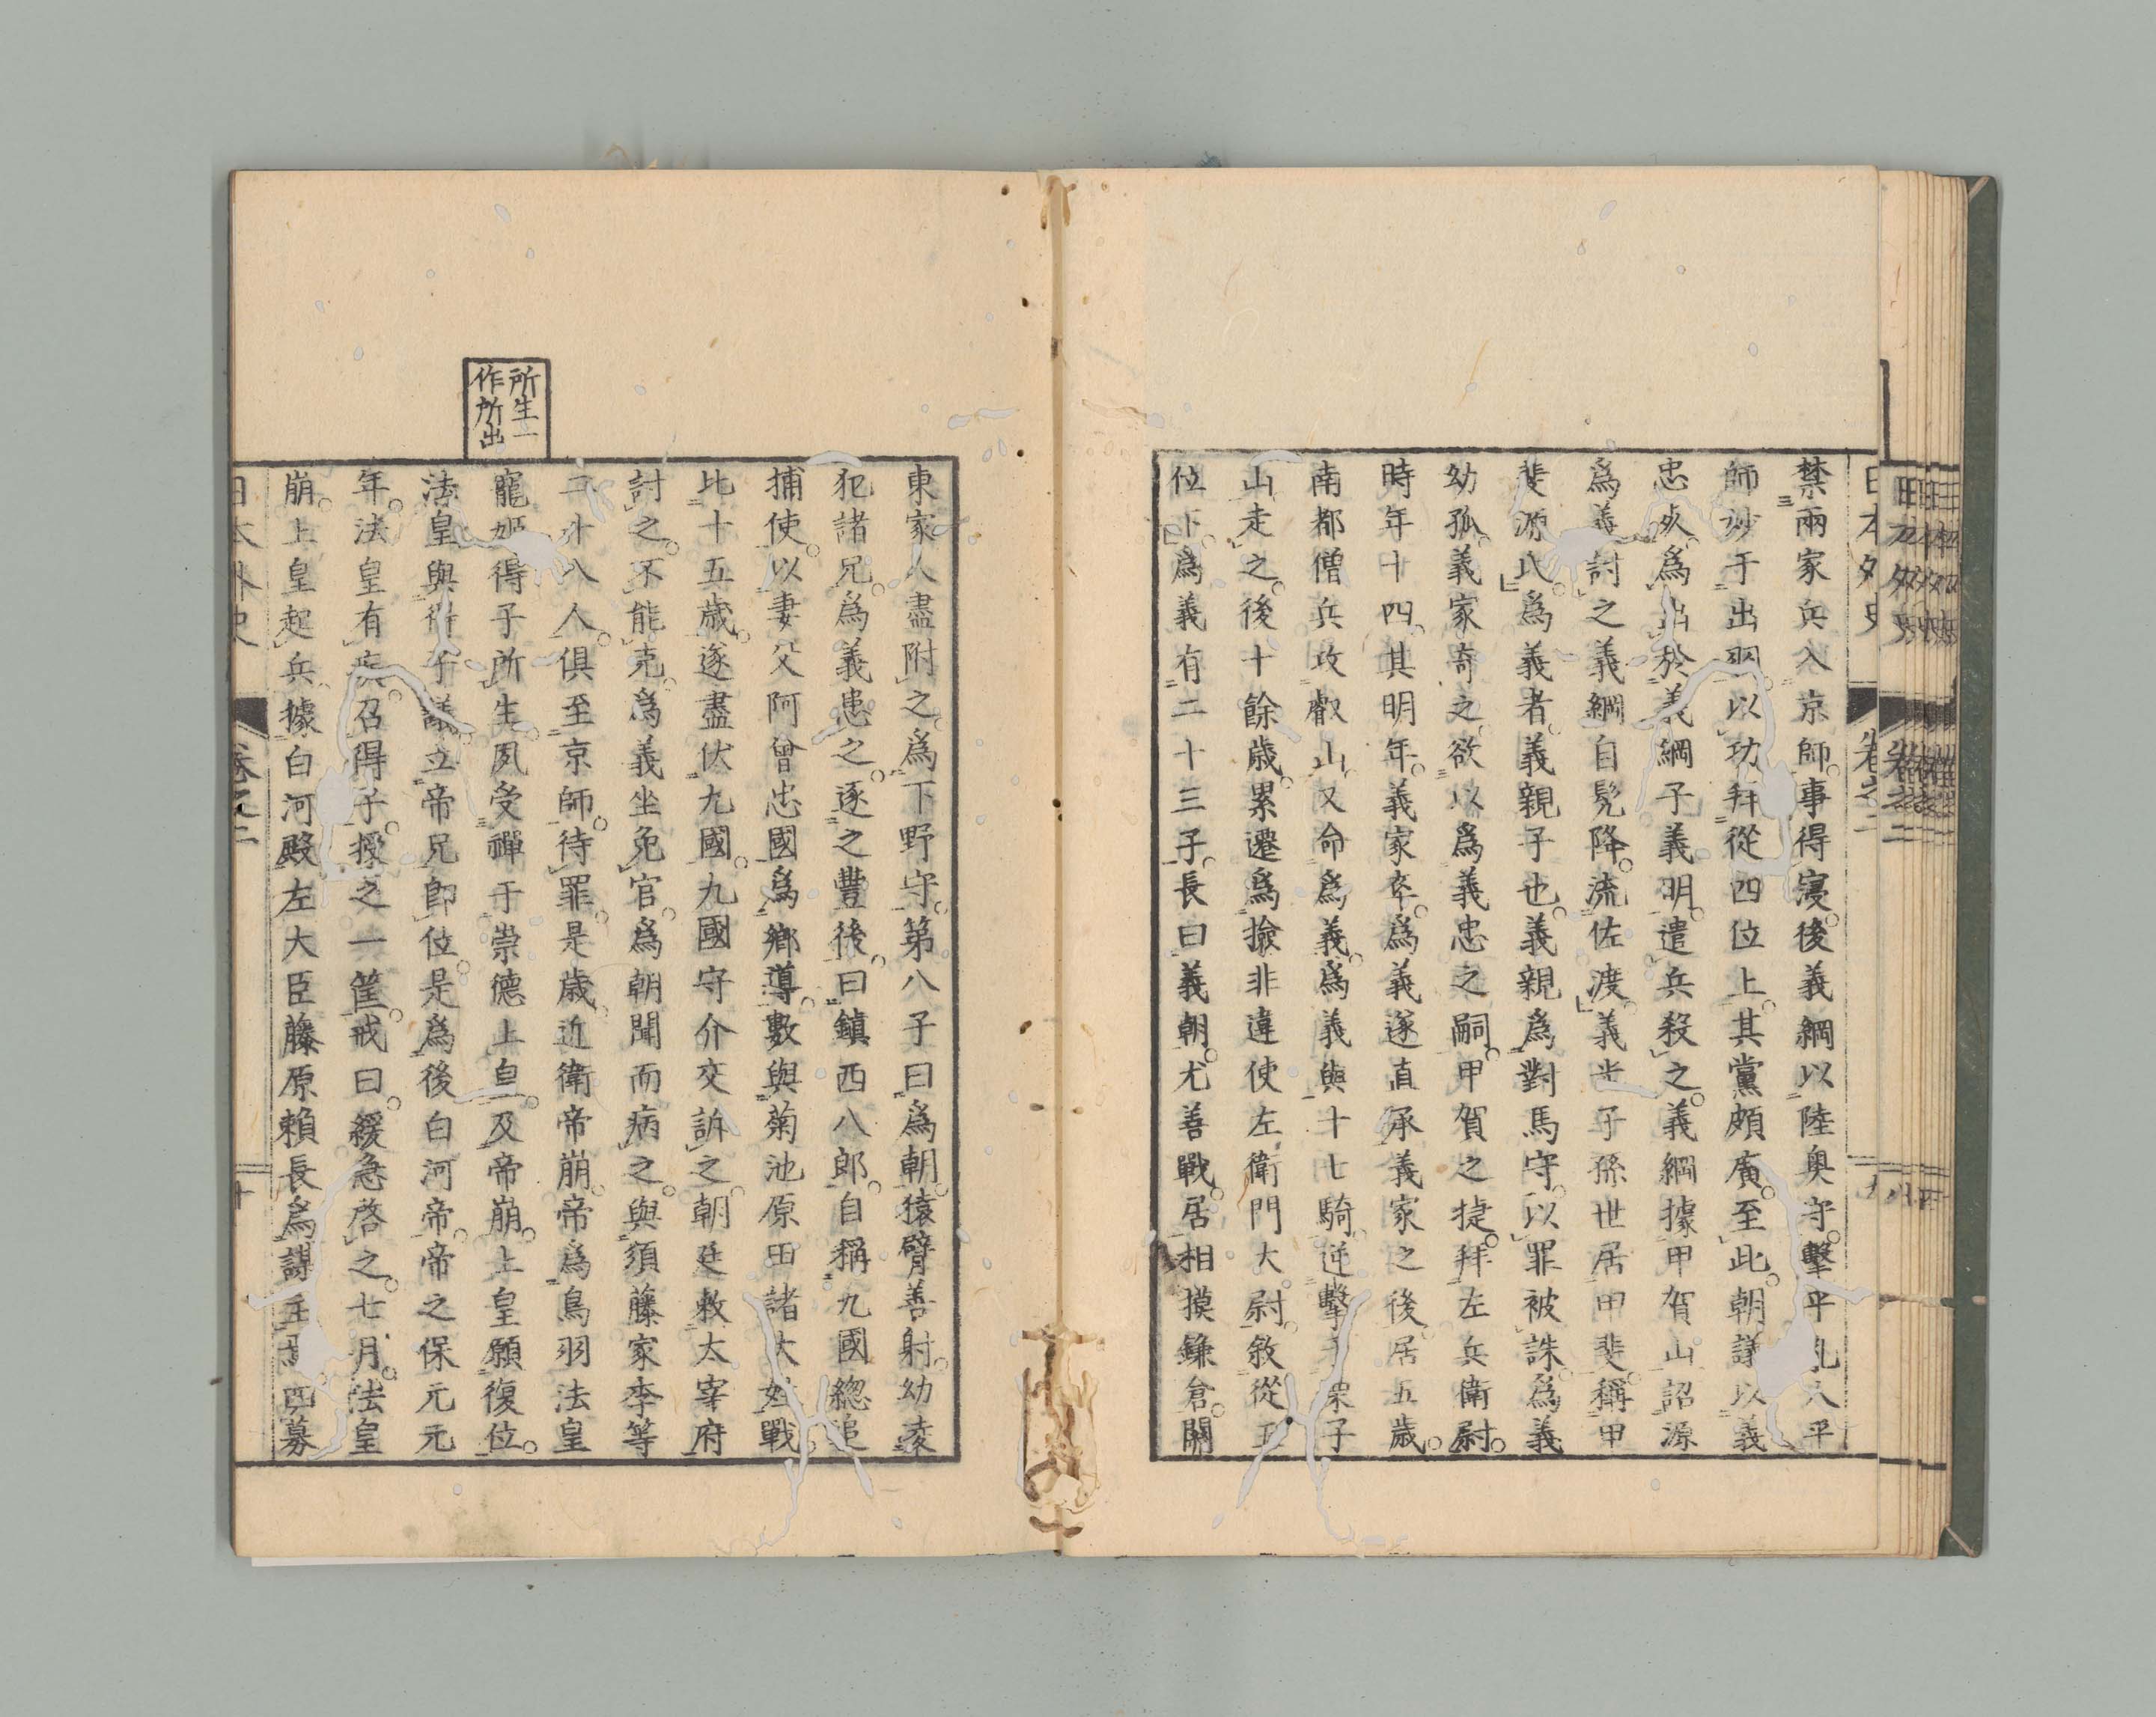 日本外史 卷之二 九
禁兩家兵入京師。事得寢。後義綱以陸奥守。擊平亂人平
師妙于出羽。以功拜從四位上。其黨頗廣。至此。朝議以義
忠死。爲出於義綱子義明。遣兵殺之。義綱據甲賀山。詔源
爲義討之。義綱自髡降。流佐渡。義光子孫世居甲斐。稱甲
斐源氏。爲義者。義親子也。義親爲對馬守。以罪被誅。爲義
幼孤。義家奇之。欲以爲義忠之嗣。甲賀之捷。拜左兵衛尉。
時年十四。其明年。義家卒。爲義遂直承義家之後。居五歲。
南都僧兵攻叡山。又命爲義。爲義與十七騎。逆擊于栗子
山走之。後十餘歲。累遷爲撿非違使左衛門大尉。敘從五
位下。爲義有二十三子。長曰義朝。尤善戰。居相摸鎌倉。關
東家人盡附之。爲下野守。第八子曰爲朝。猿臂善射。幼凌
犯諸兄。爲義患之。逐之豐後。曰鎮西八郎。自稱九國總追
捕使。以妻父阿曾忠國爲鄉導。數與菊池原田諸大姓戰。
比十五歲。遂盡伏九國。九國守介交訴之。朝廷敕太宰府
討之。不能克。爲義坐免官。爲朝聞而病之。與須藤家季等
二十八人。俱至京師。待罪。是歲。近衛帝崩。帝爲鳥羽法皇
寵姬得子所生。夙受禪于崇德上皇。及帝崩。上皇願復位。
法皇與得子議。立帝兄卽位。是爲後白河帝。帝之保元元
年。法皇有疾。召得子。授之一筐。戒曰。緩急啓之。七月。法皇
崩。上皇起兵。據白河殿。左大臣藤原賴長爲謀主。 四募
所生一
作所出
日本外史 卷之二 十